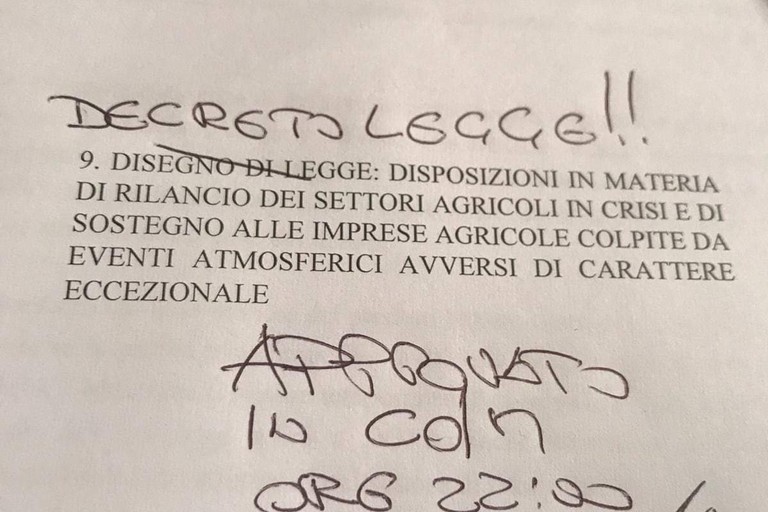 DECRETO LEGGE!!
9. DISEGNO DI LEGGE: DISPOSIZIONI IN MATERIA
DI RILANCIO DEI SETTORI AGRICOLI IN CRISI E DI
SOSTEGNO ALLE IMPRESE AGRICOLE COLPITE DA
EVENTI ATMOSFERICI AVVERSI DI CARATTERE
ECCEZIONALE
APPROVATO
IN CDM
ORE 22:00